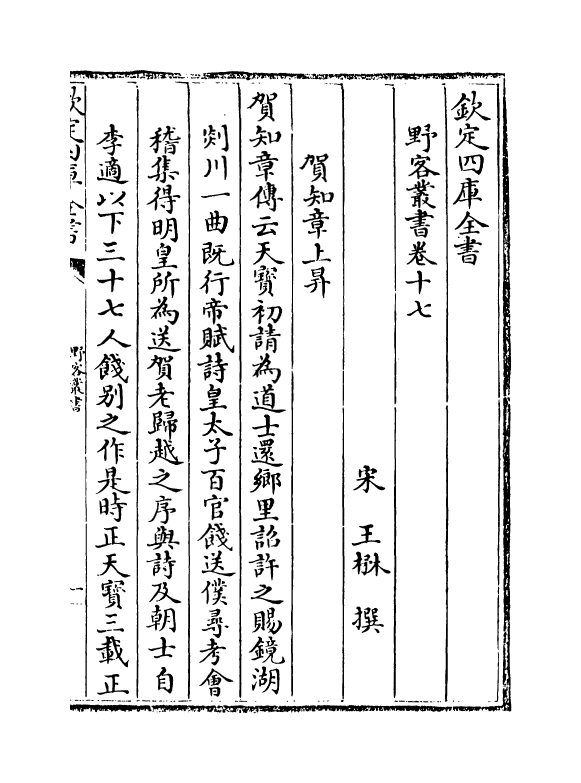 欽定四庫全書
野客叢書卷十七
宋 王楙 撰
賀知章上昇
賀知章傳云天寶初請為道士還鄉里詔許之賜鏡湖
剡川一曲既行帝賦詩皇太子百官餞送僕尋考會
稽集得明皇所為送賀老歸越之序與詩及朝士自
李適以下三十七人餞别之作是時正天寶三載正
欽定四庫全書
野客叢書
一